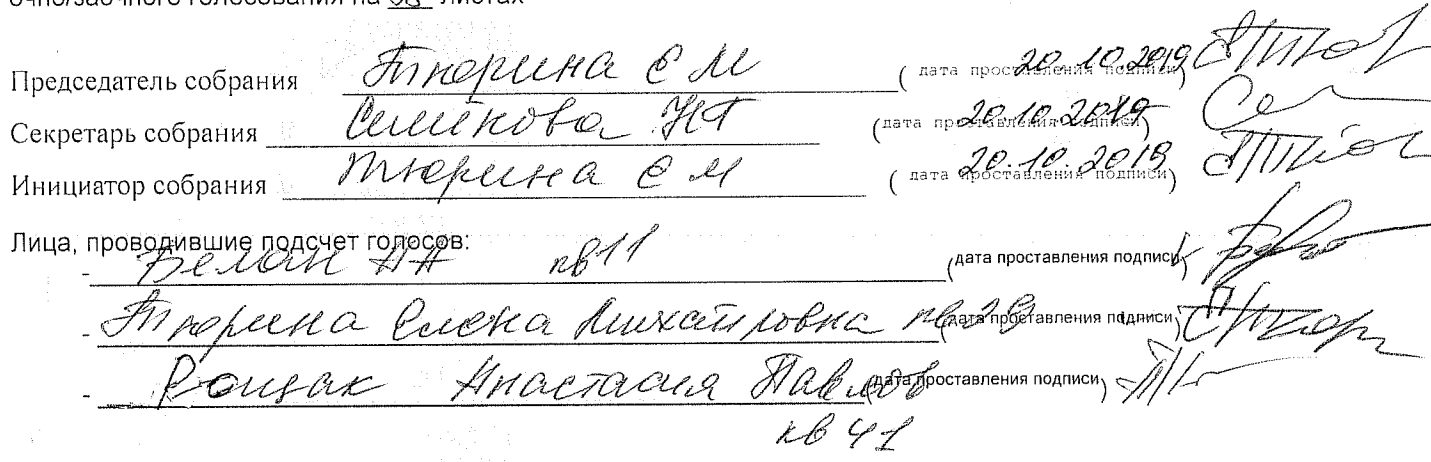 очно/заочного голосования на листах
Председатель собрания Тюрина Е М (дата проставления подписи) 20.10.2019
Секретарь собрания НГ (дата проставления подписи) 20.10.2019
Инициатор собрания Тюрина Е М (дата проставления подписи) 20.10.2019
Лица, проводившие подсчет голосов:
- Белан АА кв 11 (дата проставления подписи)
- Тюрина Елена Михайловна кв 29 (дата проставления подписи)
- Рощак Анастасия (дата проставления подписи)
кв 41